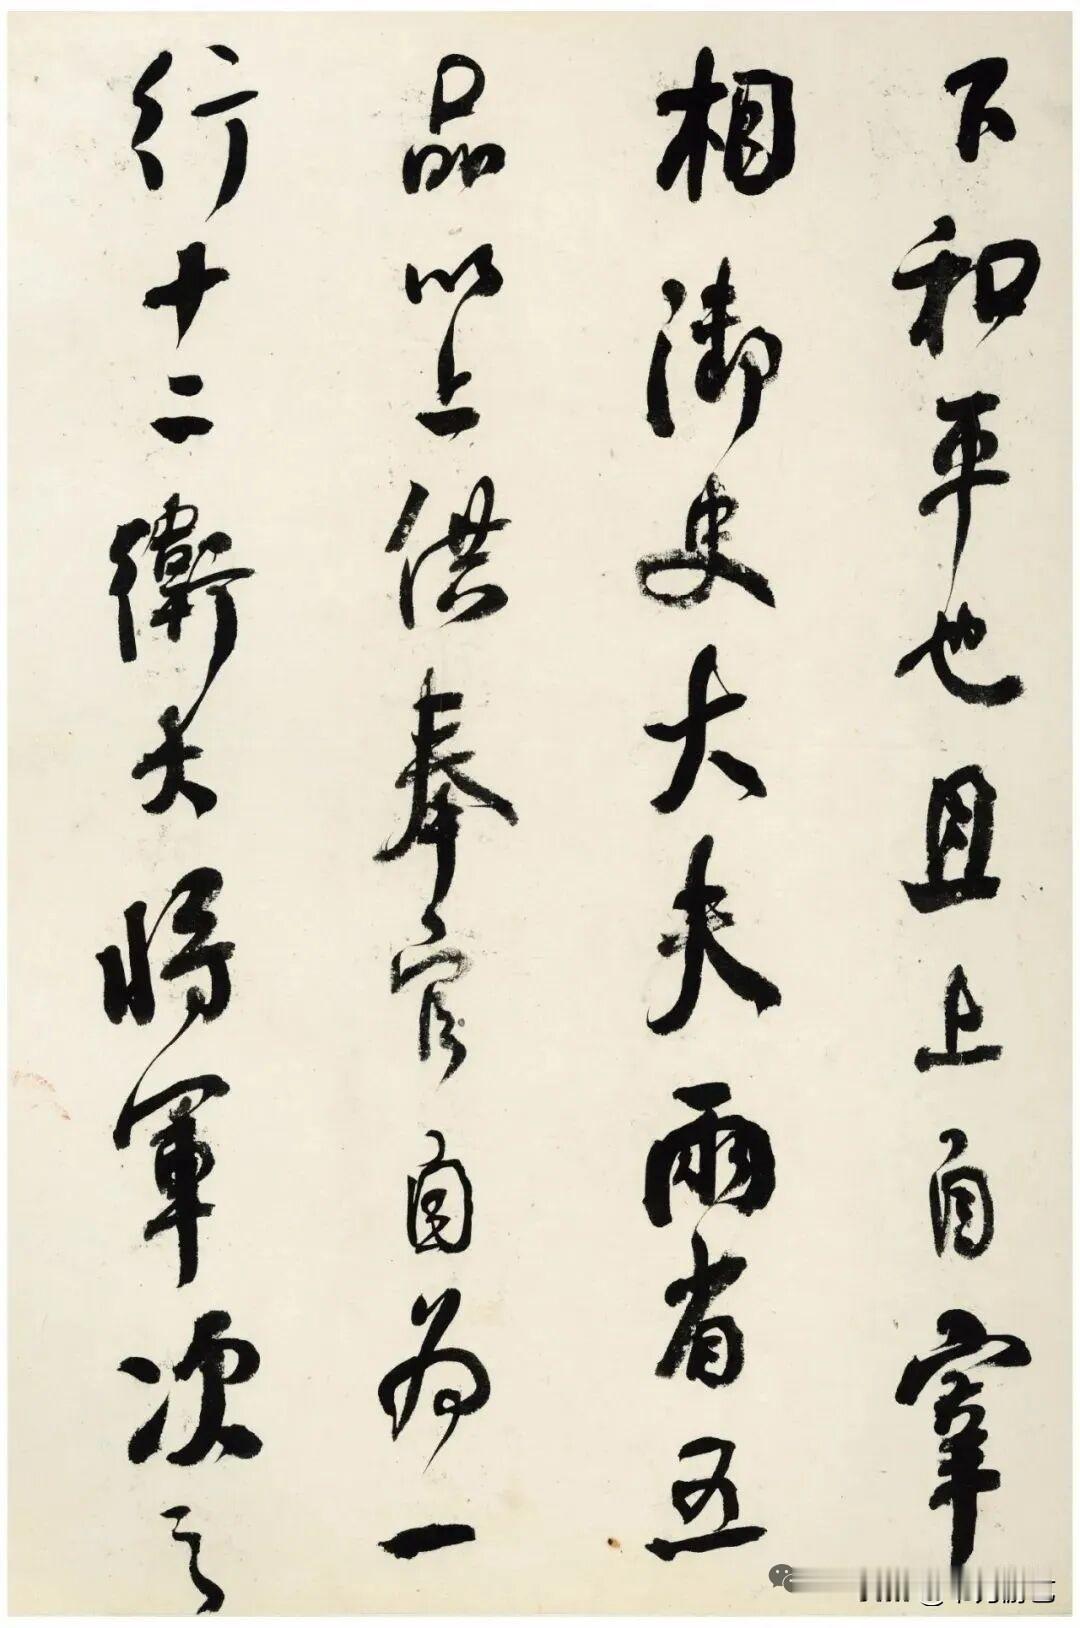 下和平也且上自宰
相御史大夫兩省五
品以上供奉官自為一
行十二衛大將軍次之